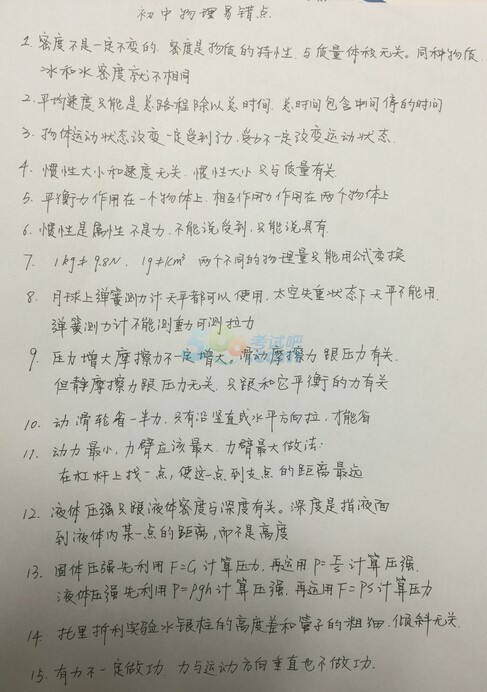 初中物理易错点
1. 密度不是一定不变的. 密度是物质的特性. 与质量体积无关。同种物质.
冰和水密度就不相同
2. 平均速度只能是总路程除以总时间. 总时间包含中间停的时间
3. 物体运动状态改变一定受到力, 受力不一定改变运动状态.
4. 惯性大小和速度无关. 惯性大小只与质量有关
5. 平衡力作用在一个物体上. 相互作用力作用在两个物体上
6. 惯性是属性不是力. 不能说受到, 只能说具有.
7. 1kg≠9.8N. 1g≠1cm³ 两个不同的物理量只能用公式变换
8. 月球上弹簧测力计天平都可以使用, 太空失重状态下天平不能用.
弹簧测力计不能测重力可测拉力
9. 压力增大摩擦力不一定增大. 滑动摩擦力跟压力有关.
但静摩擦力跟压力无关. 只跟和它平衡的力有关
10. 动滑轮省一半力. 只有沿竖直或水平方向拉, 才能省
11. 动力最小, 力臂应该最大. 力臂最大做法:
在杠杆上找一点, 使这一点到支点的距离最远
12. 液体压强只跟液体密度与深度有关。深度是指液面
到液体内某一点的距离, 而不是高度
13. 固体压强先利用F=G计算压力, 再运用P=F/S计算压强.
液体压强先利用P=ρgh计算压强. 再运用F=PS计算压力
14. 托里拆利实验水银柱的高度差和管子的粗细. 倾斜无关.
15. 有力不一定做功. 力与运动方向垂直也不做功.
考试吧